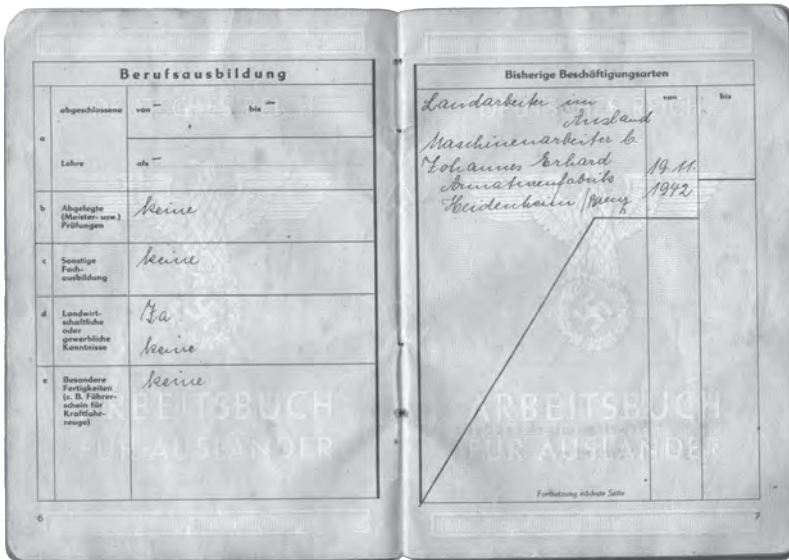 Berufsausbildung
a
abgeschlossene
von – bis –
Lehre
als –
b
Abgelegte
(Meister- usw.)
Prüfungen
keine
c
Sonstige
Fach-
ausbildung
keine
d
Landwirt-
schaftliche
oder
gewerbliche
Kenntnisse
Ja
keine
e
Besondere
Fertigkeiten
(z. B. Führer-
schein für
Kraftfahr-
zeuge)
keine
ARBEITSBUCH
FÜR AUSLÄNDER
6
Bisherige Beschäftigungsarten
von
bis
DEUTSCHES REICH
Landarbeiter im
Ausland
Maschinenarbeiter b.
Johannes Erhard
Armaturenfabrik
Heidenheim/Brenz
19.11.
1942
ARBEITSBUCH
FÜR AUSLÄNDER
Fortsetzung nächste Seite
7